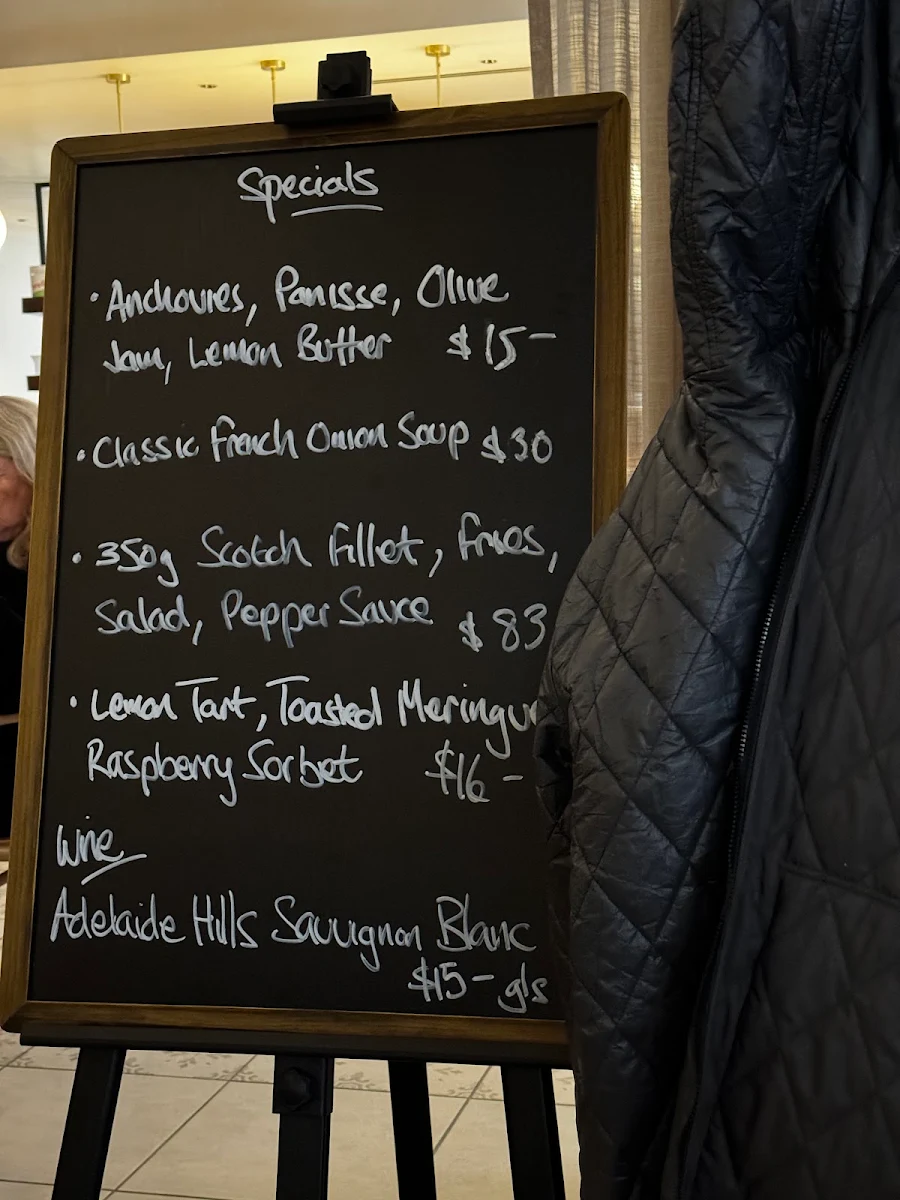 Specials
• Anchovies, Panisse, Olive
Jam, Lemon Butter $15-
• Classic French Onion Soup $30
• 350g Scotch Fillet, Fries,
Salad, Pepper Sauce $83
• Lemon Tart, Toasted Meringu
Raspberry Sorbet $16-
Wine
Adelaide Hills Sauvignon Blanc
$15- gls